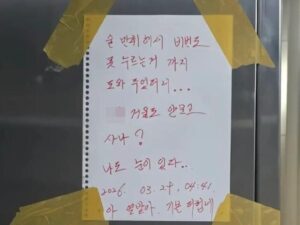 술 만취해서 비번도
못 누르는거 까지
도와 주었더니...
거울도 안보고
사나?
나도 눈이 있다..
2026. 03. 29, 04:41
아 열받아. 기분 더럽네